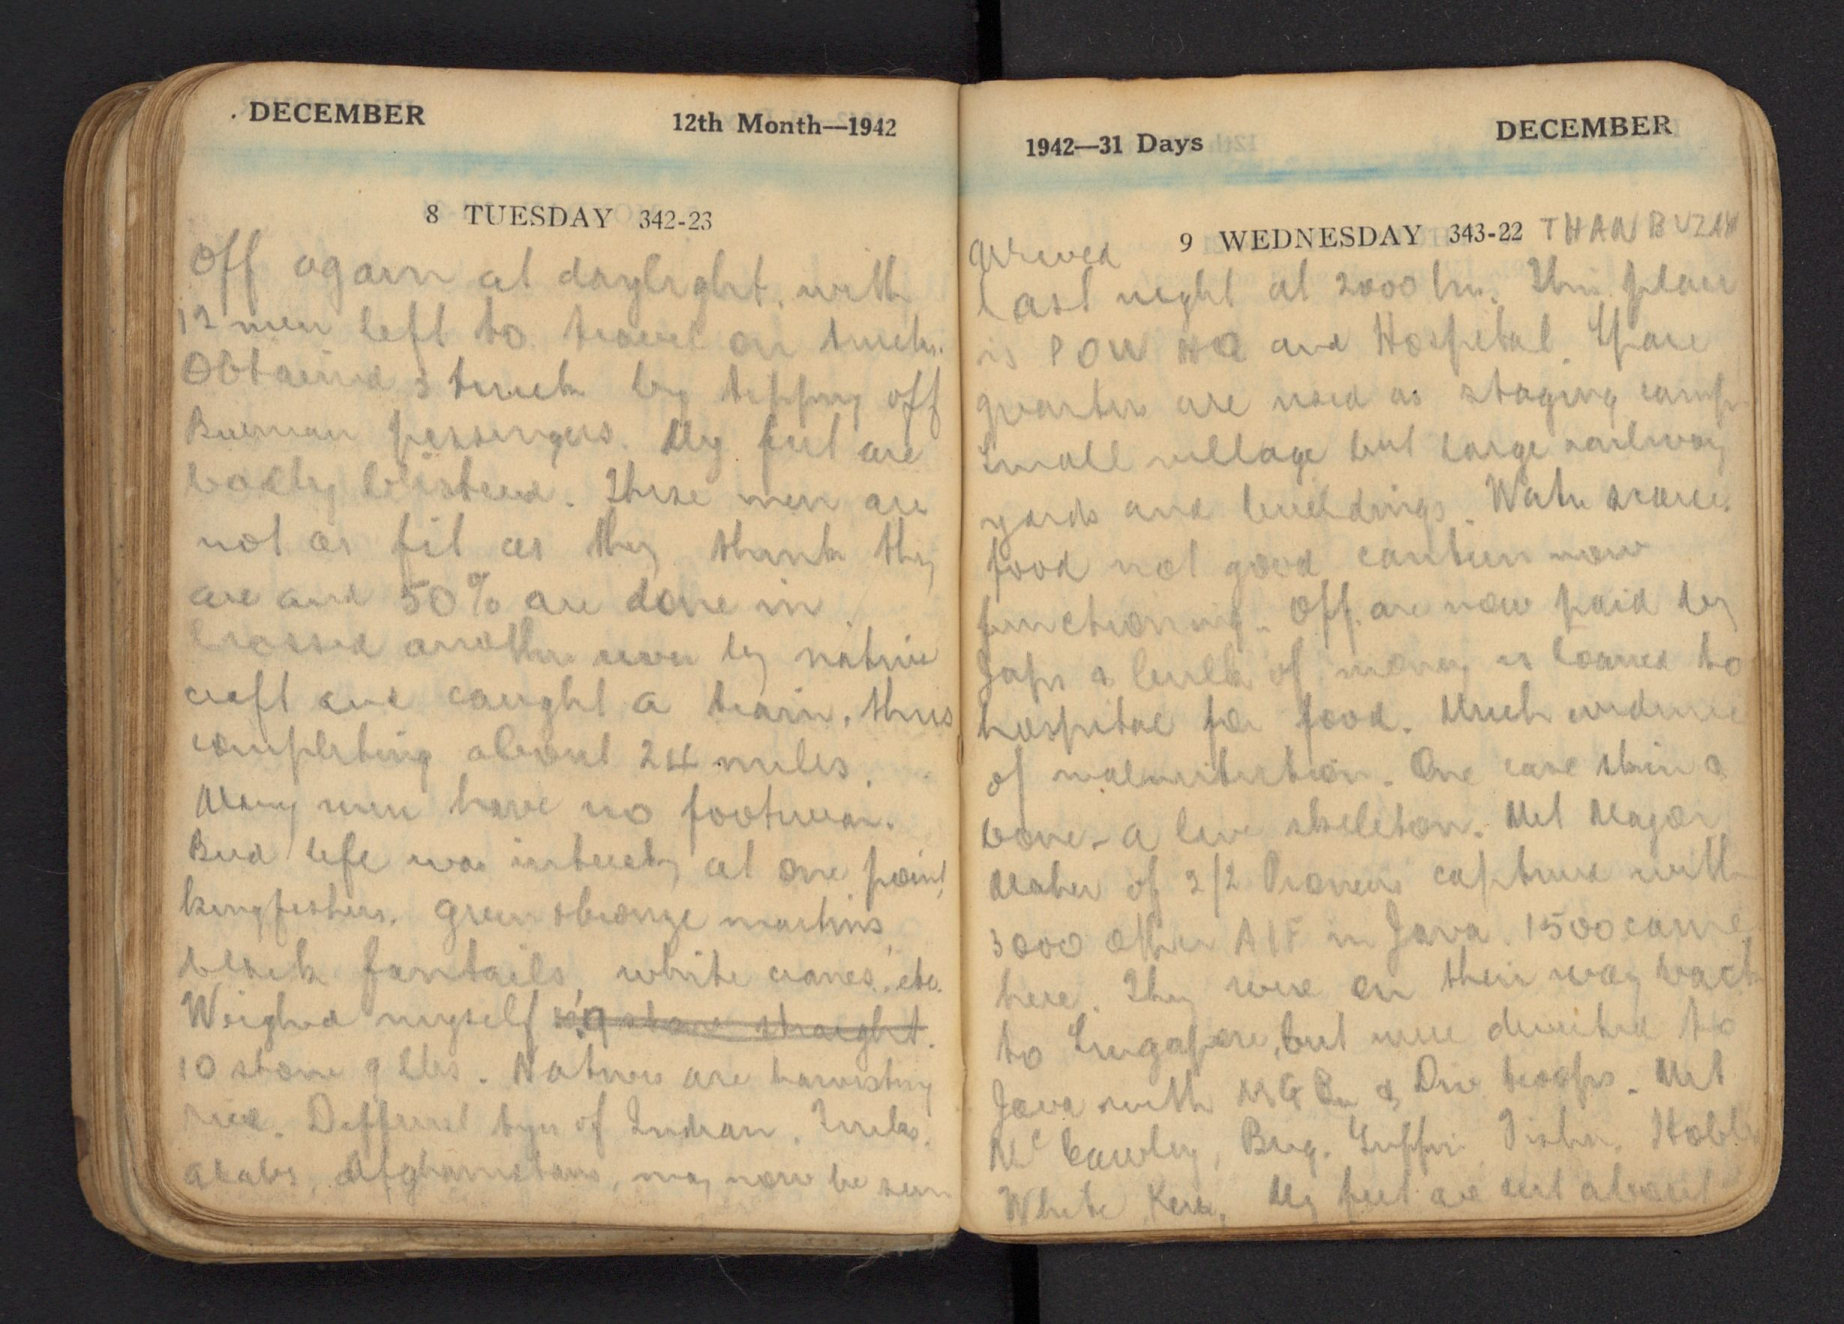 DECEMBER 12th Month—1942
8 TUESDAY 342-23
Off again at daylight, with
12 men left to travel on trucks.
Obtained 3 trucks by tipping off
Burman passengers. My feet are
badly blistered. These men are
not as fit as they think they
are and 50% are done in
Crossed another river by native
craft and caught a train, thus
completing about 24 miles.
Many men have no footwear.
Bird life was interestg at one point,
kingfishers, green & bronze martins,
black fantails, white cranes, etc.
Weighed myself in 9 stone straight.
10 stone 9 lbs. Natives are harvesting
rice. Different types of Indian.
Arabs, Afghanistans, may now be seen
1942—31 Days DECEMBER
9 WEDNESDAY 343-22 THANBUZAY
Arrived
last night at 2000 hrs. This place
is POW HQ and Hospital. Spare
quarters are used as staging camp
Small village but large railway
yards and buildings. Water scarce.
food not good canteen now
functioning. Off. are now paid by
Japs & bulk of money is loaned to
hospital for food. Much evidence
of malnutrition. One case skin &
bone - a live skeleton. Met Major
of 2/2 Pioneers captured with
3000 other AIF in Java. 1500 came
here. They were on their way back
to Singapore, but were diverted to
Java with MG Bn & Div troops. Met
McCawley, Brig. Fisher, Hobbs
White, Kerr, My feet are but about